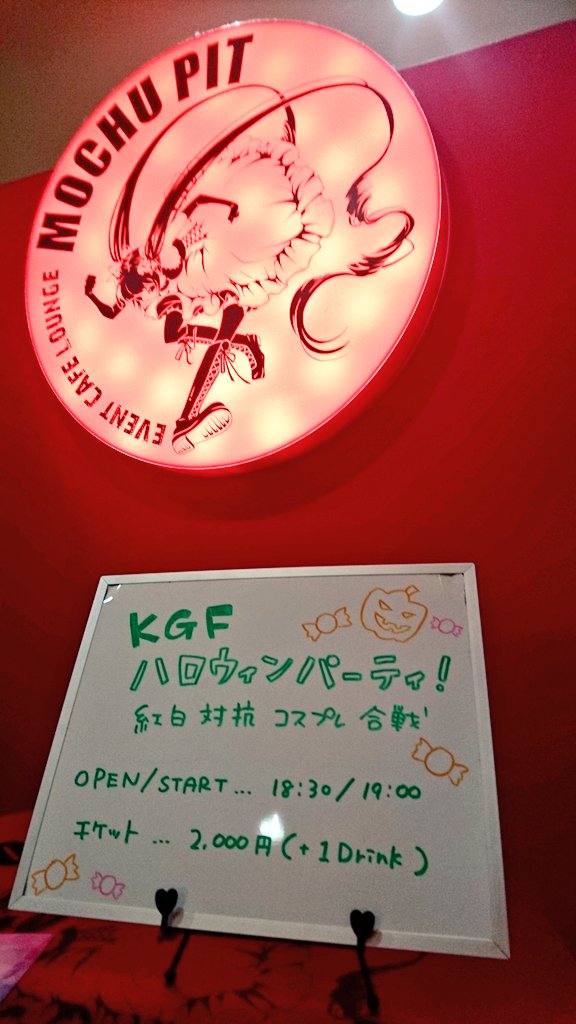 MOCHU PIT
EVENT CAFE LOUNGE
KGF
ハロウィンパーティ!
紅白 対抗 コスプレ 合戦!
OPEN/START... 18:30/19:00
チケット ... 2,000円(+1Drink)